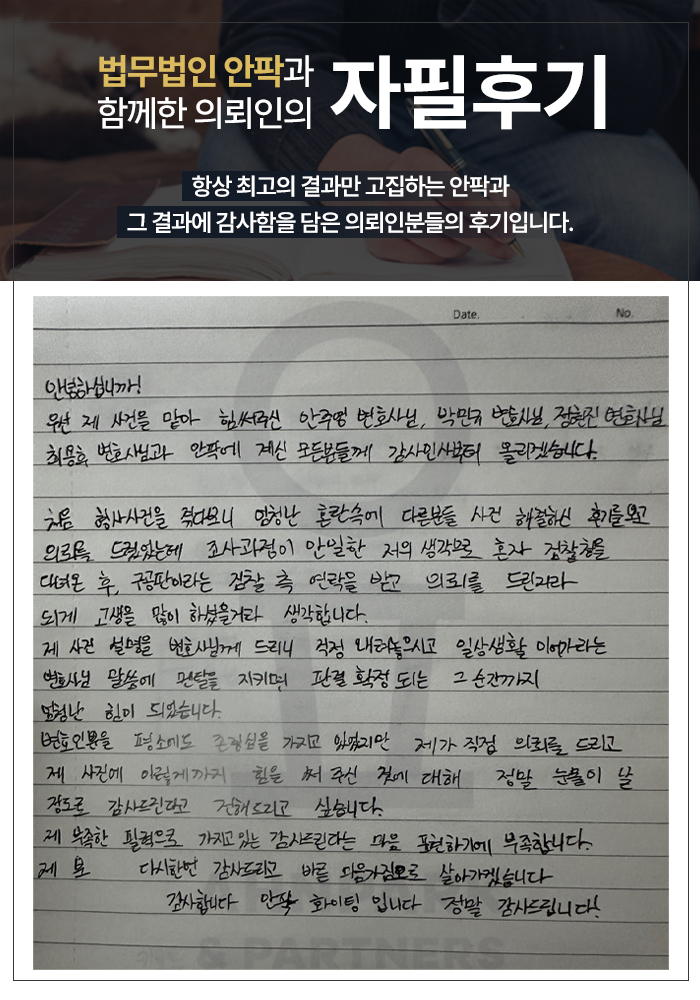 법무법인 안팍과
함께한 의뢰인의
자필후기
항상 최고의 결과만 고집하는 안팍과
그 결과에 감사함을 담은 의뢰인분들의 후기입니다.
Date.
No.
안녕하십니까!
우선 제 사건을 맡아 힘써주신 안주영 변호사님, 박민규 변호사님, 정현진 변호사님
최용희 변호사님과 안팍에 계신 모든분들께 감사인사부터 올리겠습니다.
처음 형사사건을 겪다보니 엄청난 혼란속에 다른분들 사건 해결하신 후기를 보고
의뢰를 드렸었는데 조사과정이 안일한 저의 생각으로 혼자 검찰청을
다녀온 후, 구공판이라는 검찰 측 연락을 받고 의뢰를 드린지라
되게 고생을 많이 하셨을거라 생각합니다.
제 사건 설명을 변호사님께 드리니 걱정 내려놓으시고 일상생활 이어가라는
변호사님 말씀에 멘탈을 지키며 판결 확정 되는 그 순간까지
엄청난 힘이 되었습니다.
변호인분을 평소에도 존경심을 가지고 있었지만 제가 직접 의뢰를 드리고
제 사건에 이렇게까지 힘을 써 주신 것에 대해 정말 눈물이 날
정도로 감사드린다고 전해드리고 싶습니다.
제 부족한 필력으로 가지고있는 감사드린다는 마음 표현하기에 부족합니다.
제 다시한번 감사드리고 바른 마음가짐으로 살아가겠습니다
감사합니다 안팍 화이팅 입니다 정말 감사드립니다!
& PARTNERS